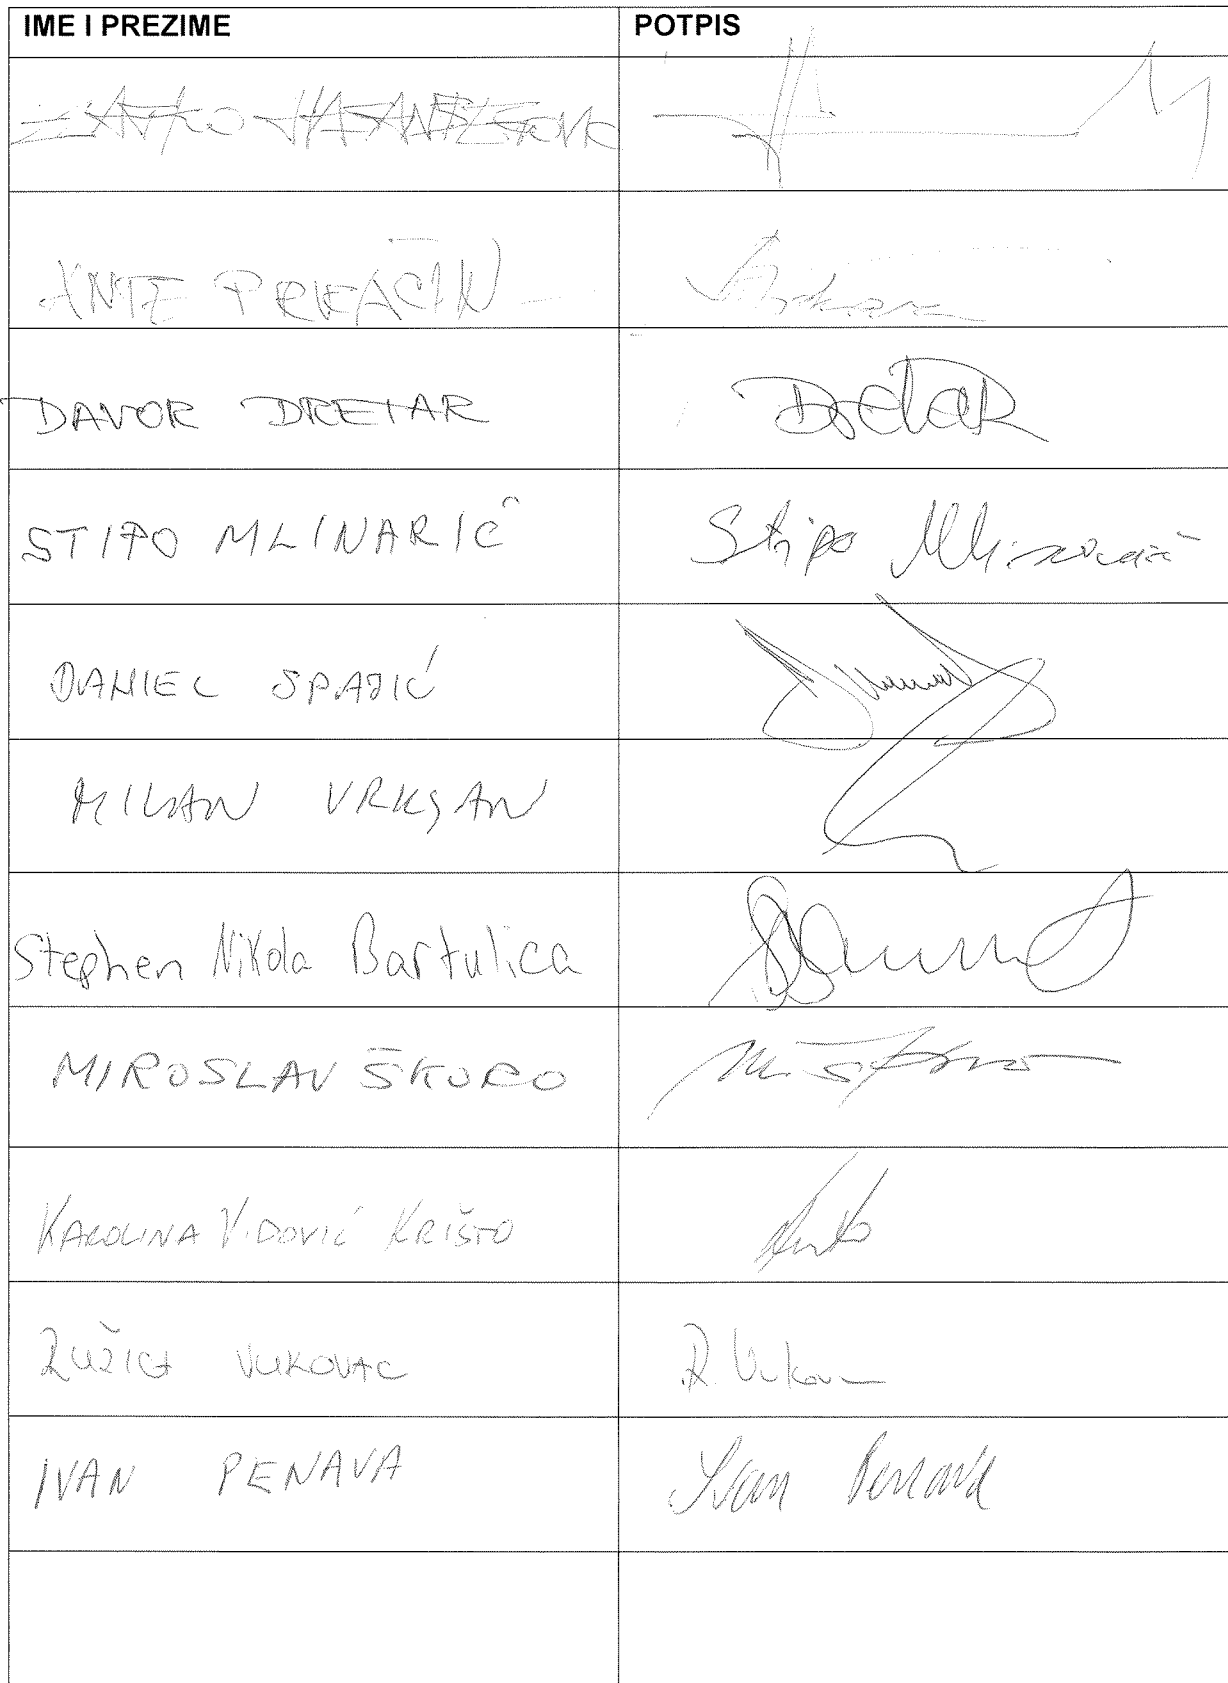 IME I PREZIME POTPIS
ZLATKO HASANBEGOVIĆ
ANTE PRKAČIN
DAVOR DRETAR Dretar
STIPO MLINARIĆ Stipo Mlinarić
DANIEL SPAJIĆ
MILAN VRKLJAN
Stephen Nikola Bartulica
MIROSLAV ŠKORO M. Škoro
KAROLINA VIDOVIĆ KRIŠTO
RUŽICA VUKOVAC R. Vukovac
IVAN PENAVA Ivan Penava